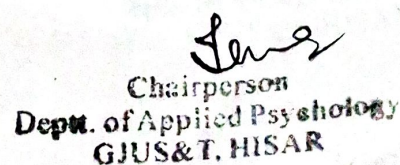 Chairperson
Deptt. of Applied Psychology
GJUS&T, HISAR